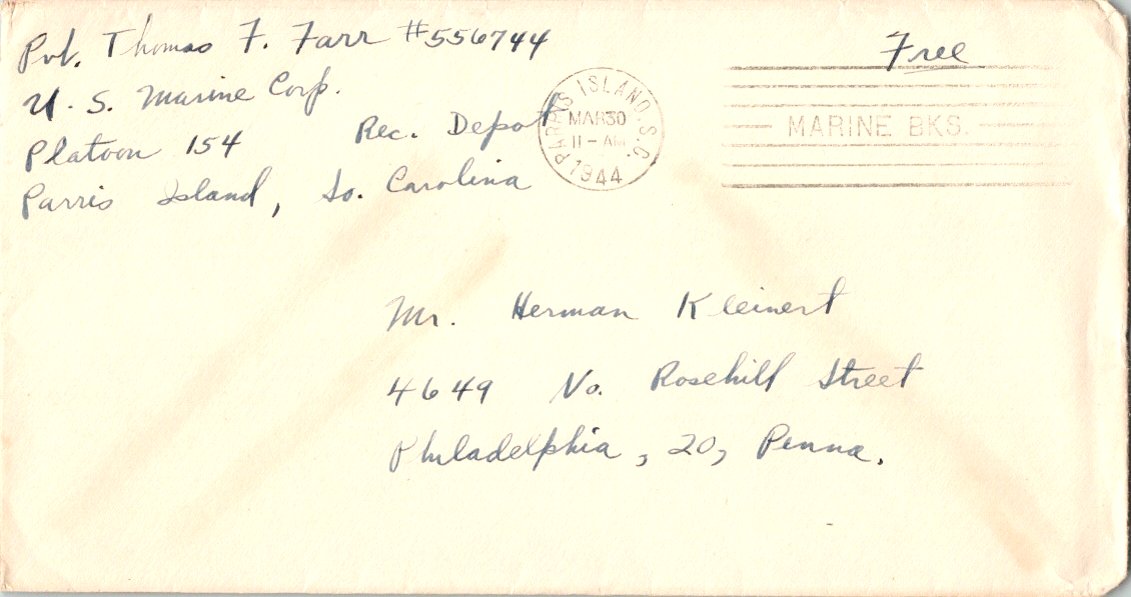 Pvt. Thomas F. Farr #556744
U. S. Marine Corp.
Platoon 154 Rec. Depot
Parris Island, So. Carolina
Free
PARRIS ISLAND, S.C.
MAR 30
11-AM
1944
MARINE BKS.
Mr. Herman Kleinert
4649 No. Rosehill Street
Philadelphia, 20, Penna.